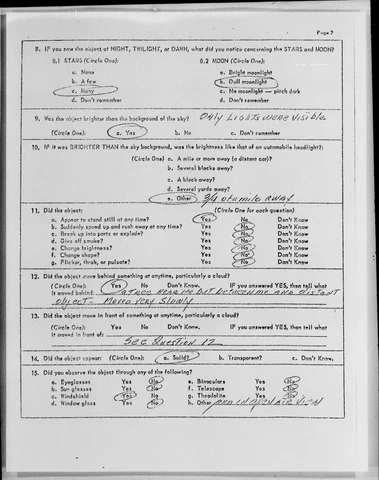 Page 2
8. IF you saw the object at NIGHT, TWILIGHT, or DAWN, what did you notice concerning the STARS and MOON?
8.1 STARS (Circle One): 8.2 MOON (Circle One):
a. None a. Bright moonlight
b. A few b. Dull moonlight
c. Many c. No moonlight — pitch dark
d. Don't remember d. Don't remember
9. Was the object brighter than the background of the sky? ONLY LIGHTS WERE VISIBLE
(Circle One): a. Yes b. No c. Don't remember
10. IF it was BRIGHTER THAN the sky background, was the brightness like that of an automobile headlight?:
(Circle One) a. A mile or more away (a distant car)?
b. Several blocks away?
c. A block away?
d. Several yards away?
e. Other 3/4 of a mile away
11. Did the object: (Circle One for each question)
a. Appear to stand still at any time? Yes No Don't Know
b. Suddenly speed up and rush away at any time? Yes No Don't Know
c. Break up into parts or explode? Yes No Don't Know
d. Give off smoke? Yes No Don't Know
e. Change brightness? Yes No Don't Know
f. Change shape? Yes No Don't Know
g. Flicker, throb, or pulsate? Yes No Don't Know
12. Did the object move behind something at anytime, particularly a cloud?
(Circle One): Yes No Don't Know. IF you answered YES, then tell what
it moved behind: A tree near me but between me and distant
object. Moved very slowly
13. Did the object move in front of something at anytime, particularly a cloud?
(Circle One): Yes No Don't Know. IF you answered YES, then tell what
it moved in front of: See Question 12
14. Did the object appear: (Circle One): a. Solid? b. Transparent? c. Don't Know.
15. Did you observe the object through any of the following?
a. Eyeglasses Yes No e. Binoculars Yes No
b. Sun glasses Yes No f. Telescope Yes No
c. Windshield Yes No g. Theodolite Yes No
d. Window glass Yes No h. Other AND IN OPEN AIR VIEW